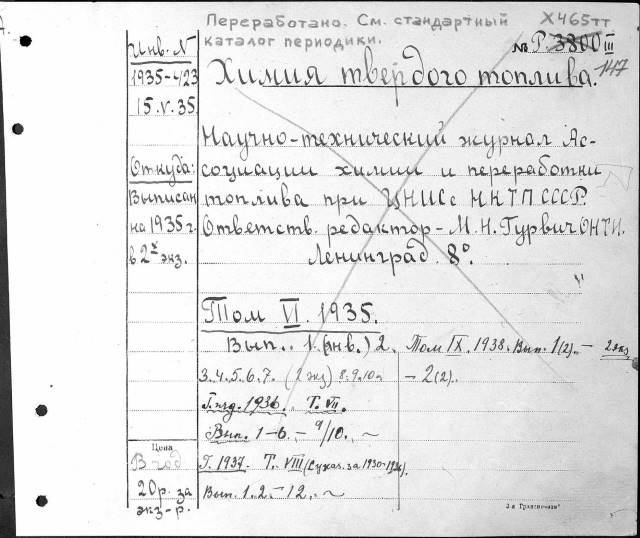 Переработано. См. стандартный Х465тт
каталог периодики.
№ Р. 3800 III
147
Инв. N
1935-423
15.V.35.
Химия твердого топлива.
Научно-технический журнал Ас-
социации химии и переработки
топлива при ЦНИСе НКТП СССР.
Ответств. редактор - М.Н. Гурвич ОНТИ.
Ленинград. 8º.
Откуда:
Выписан
на 1935 г.
в 2х экз.
Том VI. 1935.
Вып. 1 (янв.) 2.
3.4.5.6.7. (2 экз) 8.9.10
1936. Т. VII.
Вып. 1-6. - 9/10. ~
Г. 1937. Т. VIII
Вып. 1.2.-12. ~
Том IX. 1938. Вып. 1(2). - 2 экз
- 2(2).
Цена
В год
20 р. за
экз-р.